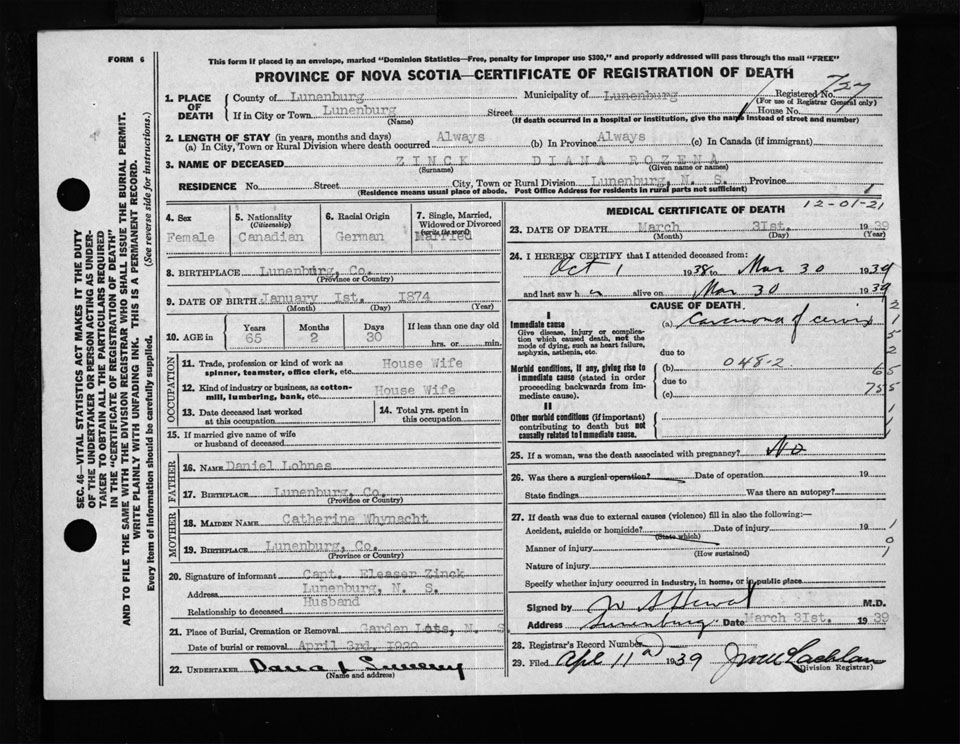 FORM 6
This form if placed in an envelope, marked "Dominion Statistics—Free, penalty for improper use $300," and properly addressed will pass through the mail "FREE"
PROVINCE OF NOVA SCOTIA—CERTIFICATE OF REGISTRATION OF DEATH
1. PLACE OF DEATH County of Lunenburg Municipality of Lunenburg Registered No. 727
(For use of Registrar General only)
If in City or Town Lunenburg Street House No.
(Name) (If death occurred in a hospital or institution, give the name instead of street and number)
2. LENGTH OF STAY (in years, months and days)
(a) In City, Town or Rural Division where death occurred Always (b) In Province Always (c) In Canada (if immigrant)
3. NAME OF DECEASED ZINCK DIANA ROZENA
(Surname) (Given name or names)
RESIDENCE No. Street City, Town or Rural Division Lunenburg, N. S. Province
(Residence means usual place of abode. Post Office Address for residents in rural parts not sufficient)
4. Sex Female
5. Nationality (Citizenship) Canadian
6. Racial Origin German
7. Single, Married, Widowed or Divorced (write the word) Married
8. BIRTHPLACE Lunenburg, Co.
(Province or Country)
9. DATE OF BIRTH January 1st. 1874
(Month) (Day) (Year)
10. AGE in Years 65 Months 2 Days 30 If less than one day old hrs. or min.
OCCUPATION
11. Trade, profession or kind of work as spinner, teamster, office clerk, etc. House Wife
12. Kind of industry or business, as cotton-mill, lumbering, bank, etc. House Wife
13. Date deceased last worked at this occupation
14. Total yrs. spent in this occupation
15. If married give name of wife or husband of deceased
FATHER
16. NAME Daniel Lohnes
17. BIRTHPLACE Lunenburg, Co.
(Province or Country)
MOTHER
18. MAIDEN NAME Catherine Whynacht
19. BIRTHPLACE Lunenburg, Co.
(Province or Country)
20. Signature of informant Capt. Eleaser Zinck
Address Lunenburg, N. S.
Relationship to deceased Husband
21. Place of Burial, Cremation or Removal Garden Lots, N. S
Date of burial or removal April 3rd, 1939
22. UNDERTAKER
(Name and address)
MEDICAL CERTIFICATE OF DEATH 12-01-21
23. DATE OF DEATH March 31st. 1939
(Month) (Day) (Year)
24. I HEREBY CERTIFY that I attended deceased from:
Oct 1 1938 to Mar 30 1939
and last saw h alive on Mar 30 1939
CAUSE OF DEATH
I
Immediate cause (a) Carcinoma of cervix
Give disease, injury or complication which caused death, not the mode of dying, such as heart failure, asphyxia, asthenia, etc.
due to
Morbid conditions, if any, giving rise to immediate cause (stated in order proceeding backwards from immediate cause). (b) 048-2
due to
(c)
II
Other morbid conditions (if important) contributing to death but not causally related to immediate cause.
25. If a woman, was the death associated with pregnancy? No
26. Was there a surgical operation? Date of operation 19
State findings Was there an autopsy?
27. If death was due to external causes (violence) fill in also the following:—
Accident, suicide or homicide? Date of injury 19
(State which)
Manner of injury
(How sustained)
Nature of injury
Specify whether injury occurred in industry, in home, or in public place
Signed by M.D.
Address Lunenburg. Date March 31st. 1939
28. Registrar's Record Number
29. Filed Apl 11 1939
(Division Registrar)
SEC. 46—VITAL STATISTICS ACT MAKES IT THE DUTY
OF THE UNDERTAKER OR PERSON ACTING AS UNDER-
TAKER TO OBTAIN ALL THE PARTICULARS REQUIRED
IN THE "CERTIFICATE OF REGISTRATION OF DEATH"
AND TO FILE THE SAME WITH THE DIVISION REGISTRAR WHO SHALL ISSUE THE BURIAL PERMIT.
WRITE PLAINLY WITH UNFADING INK. THIS IS A PERMANENT RECORD.
Every item of information should be carefully supplied. (See reverse side for instructions.)